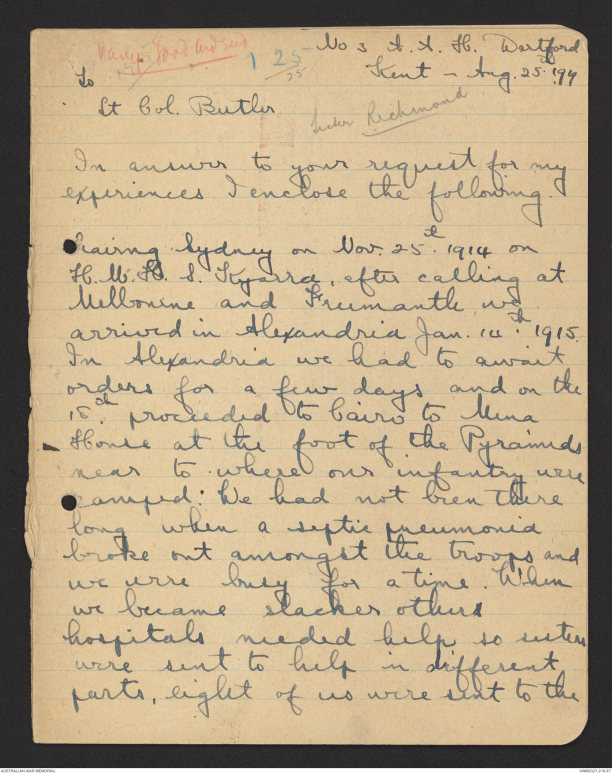 1 25
25
No 3 A. A. H. Dartford
Kent - Aug. 25th. 19
To
Lt Col. Butler
Sister Richmond
In answer to your request for my
experiences I enclose the following.
Sydney on Nov. 25th. 1914 on
H. M. H. S. Kyarra, after calling at
Melbourne and Freemantle we
arrived in Alexandria Jan. 14th. 1915.
In Alexandria we had to await
orders for a few days and on the
proceeded to Cairo to Mena
House at the foot of the Pyramids
near to where our infantry were
camped. We had not been there
long when a septic pneumonia
broke out amongst the troops and
we were busy for a time. When
we became slacker others
hospitals needed help so sisters
were sent to help in different
parts, eight of us were sent to the
AUSTRALIAN WAR MEMORIAL